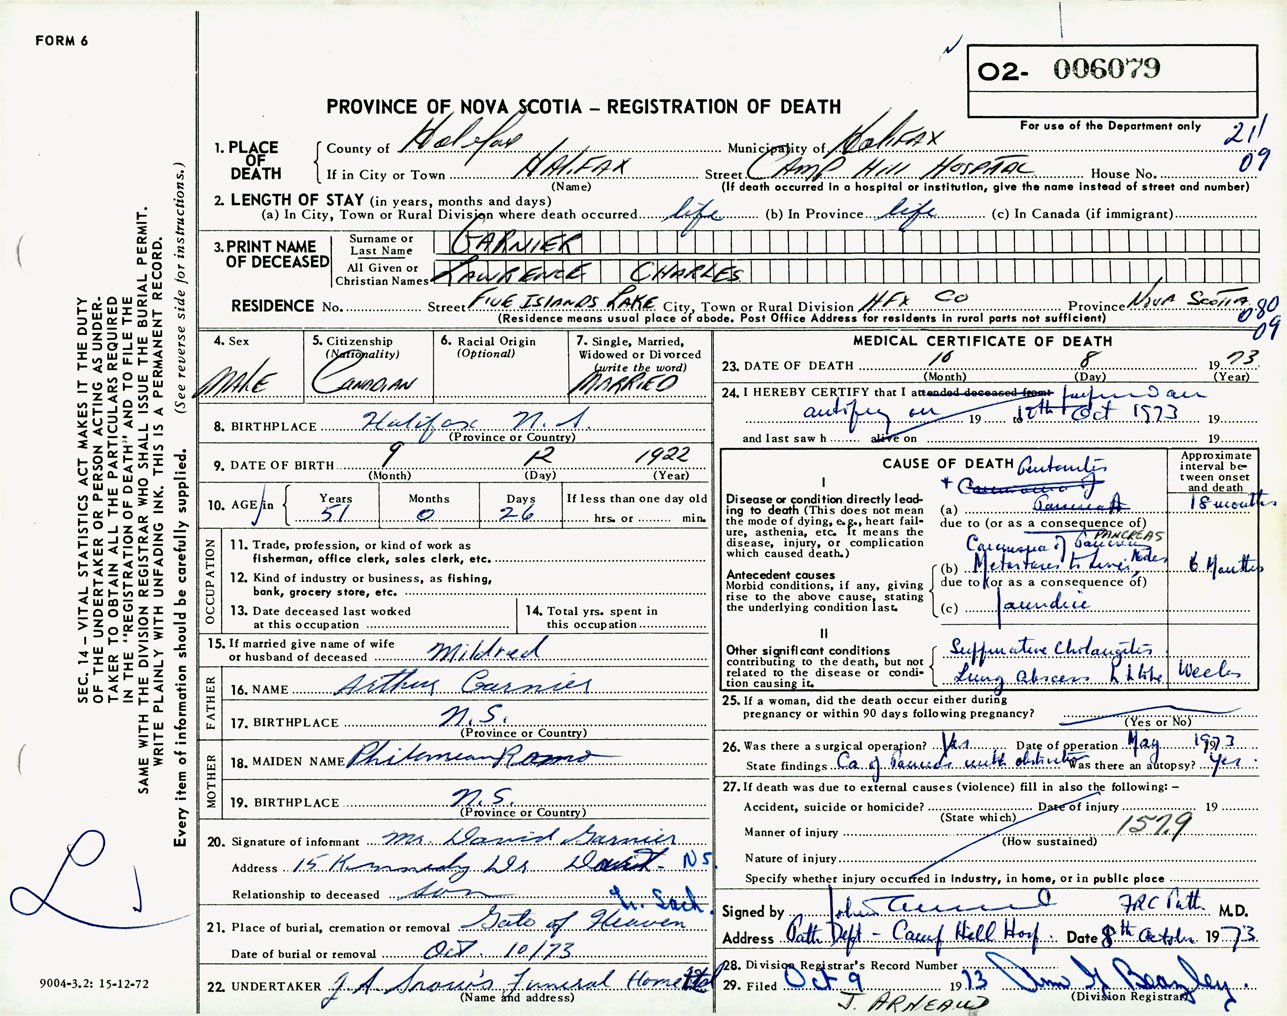 FORM 6
O2- 006079
PROVINCE OF NOVA SCOTIA – REGISTRATION OF DEATH
For use of the Department only
211
09
1. PLACE OF DEATH
County of Halifax Municipality of Halifax
If in City or Town HALIFAX Street CAMP HILL HOSPITAL House No.
(Name) (If death occurred in a hospital or institution, give the name instead of street and number)
2. LENGTH OF STAY (in years, months and days)
(a) In City, Town or Rural Division where death occurred life (b) In Province life (c) In Canada (if immigrant)
3. PRINT NAME OF DECEASED
Surname or Last Name GARNIER
All Given or Christian Names LAWRENCE CHARLES
RESIDENCE No. Street FIVE ISLANDS LAKE City, Town or Rural Division HFX CO Province NOVA SCOTIA
(Residence means usual place of abode. Post Office Address for residents in rural parts not sufficient)
080
09
4. Sex MALE
5. Citizenship (Nationality) CANADIAN
6. Racial Origin (Optional)
7. Single, Married, Widowed or Divorced (write the word) MARRIED
8. BIRTHPLACE Halifax N.S.
(Province or Country)
9. DATE OF BIRTH 9 12 1922
(Month) (Day) (Year)
10. AGE in Years 51 Months 0 Days 26 If less than one day old hrs. or min.
OCCUPATION
11. Trade, profession, or kind of work as fisherman, office clerk, sales clerk, etc.
12. Kind of industry or business, as fishing, bank, grocery store, etc.
13. Date deceased last worked at this occupation
14. Total yrs. spent in this occupation
15. If married give name of wife or husband of deceased Mildred
FATHER
16. NAME Arthur Garnier
17. BIRTHPLACE N.S.
(Province or Country)
MOTHER
18. MAIDEN NAME
19. BIRTHPLACE N.S.
(Province or Country)
20. Signature of informant Mr. David Garnier
Address 15 Kennedy Dr NS.
Relationship to deceased son L. Sack.
21. Place of burial, cremation or removal Gate of Heaven
Date of burial or removal Oct. 10/73
22. UNDERTAKER J.A. Snow's Funeral Home Ltd
(Name and address)
MEDICAL CERTIFICATE OF DEATH
23. DATE OF DEATH 10 8 1973
(Month) (Day) (Year)
24. I HEREBY CERTIFY that I attended deceased from
on 19 to 12th Oct 1973 19
and last saw h alive on 19
CAUSE OF DEATH
Approximate interval between onset and death
I
Disease or condition directly leading to death (This does not mean the mode of dying, e.g., heart failure, asthenia, etc. It means the disease, injury, or complication which caused death.)
(a) 18 months
due to (or as a consequence of)
Carcinoma of PANCREAS
(b) Metastases to Liver, Nodes 6 Months
Antecedent causes
Morbid conditions, if any, giving rise to the above cause, stating the underlying condition last.
due to (or as a consequence of)
(c) Jaundice
II
Other significant conditions contributing to the death, but not related to the disease or condition causing it.
Suppurative Cholangitis
Lung abscess Weeks
25. If a woman, did the death occur either during pregnancy or within 90 days following pregnancy?
(Yes or No)
26. Was there a surgical operation? Yes Date of operation May 1973
State findings Ca of Pancreas with obstruction Was there an autopsy? Yes.
27. If death was due to external causes (violence) fill in also the following: –
Accident, suicide or homicide? Date of injury 19
(State which)
Manner of injury 157.9
(How sustained)
Nature of injury
Specify whether injury occurred in Industry, in home, or in public place
Signed by John FRC Path M.D.
Address Path Dept – Camp Hill Hosp. Date 8th October 1973
28. Division Registrar's Record Number
29. Filed Oct 9 1973
(Division Registrar)
J. ARNEAUD
SEC. 14 – VITAL STATISTICS ACT MAKES IT THE DUTY
OF THE UNDERTAKER OR PERSON ACTING AS UNDER-
TAKER TO OBTAIN ALL THE PARTICULARS REQUIRED
IN THE "REGISTRATION OF DEATH" AND TO FILE THE
SAME WITH THE DIVISION REGISTRAR WHO SHALL ISSUE THE BURIAL PERMIT.
WRITE PLAINLY WITH UNFADING INK. THIS IS A PERMANENT RECORD.
Every item of information should be carefully supplied. (See reverse side for instructions.)
9004-3.2: 15-12-72